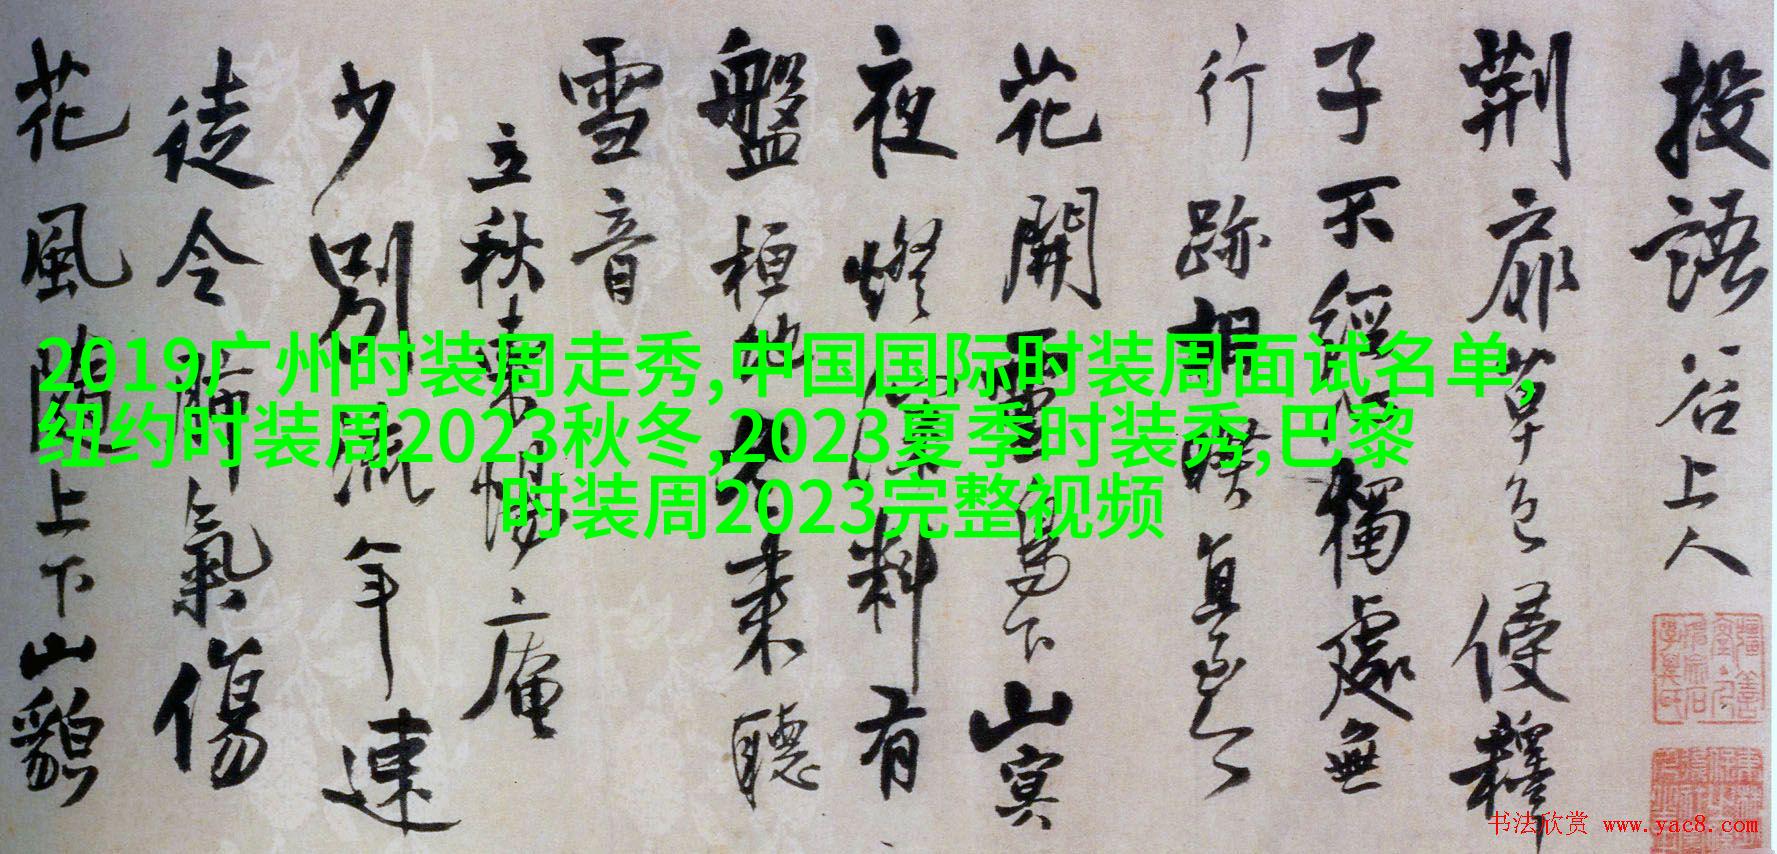 投語谷上人
荆扉草色侵釋
子不經獨處無
行跡相
花開下山寞
夜燈料有
盤桓来聽
雪音
立秋庵
少別流年速
徒令肺氣傷
花風上下山貌
2019广州时装周走秀,中国国际时装周面试名单,
纽约时装周2023秋冬,2023夏季时装秀,巴黎
时装周2023完整视频
书法欣赏 www.yac8.com